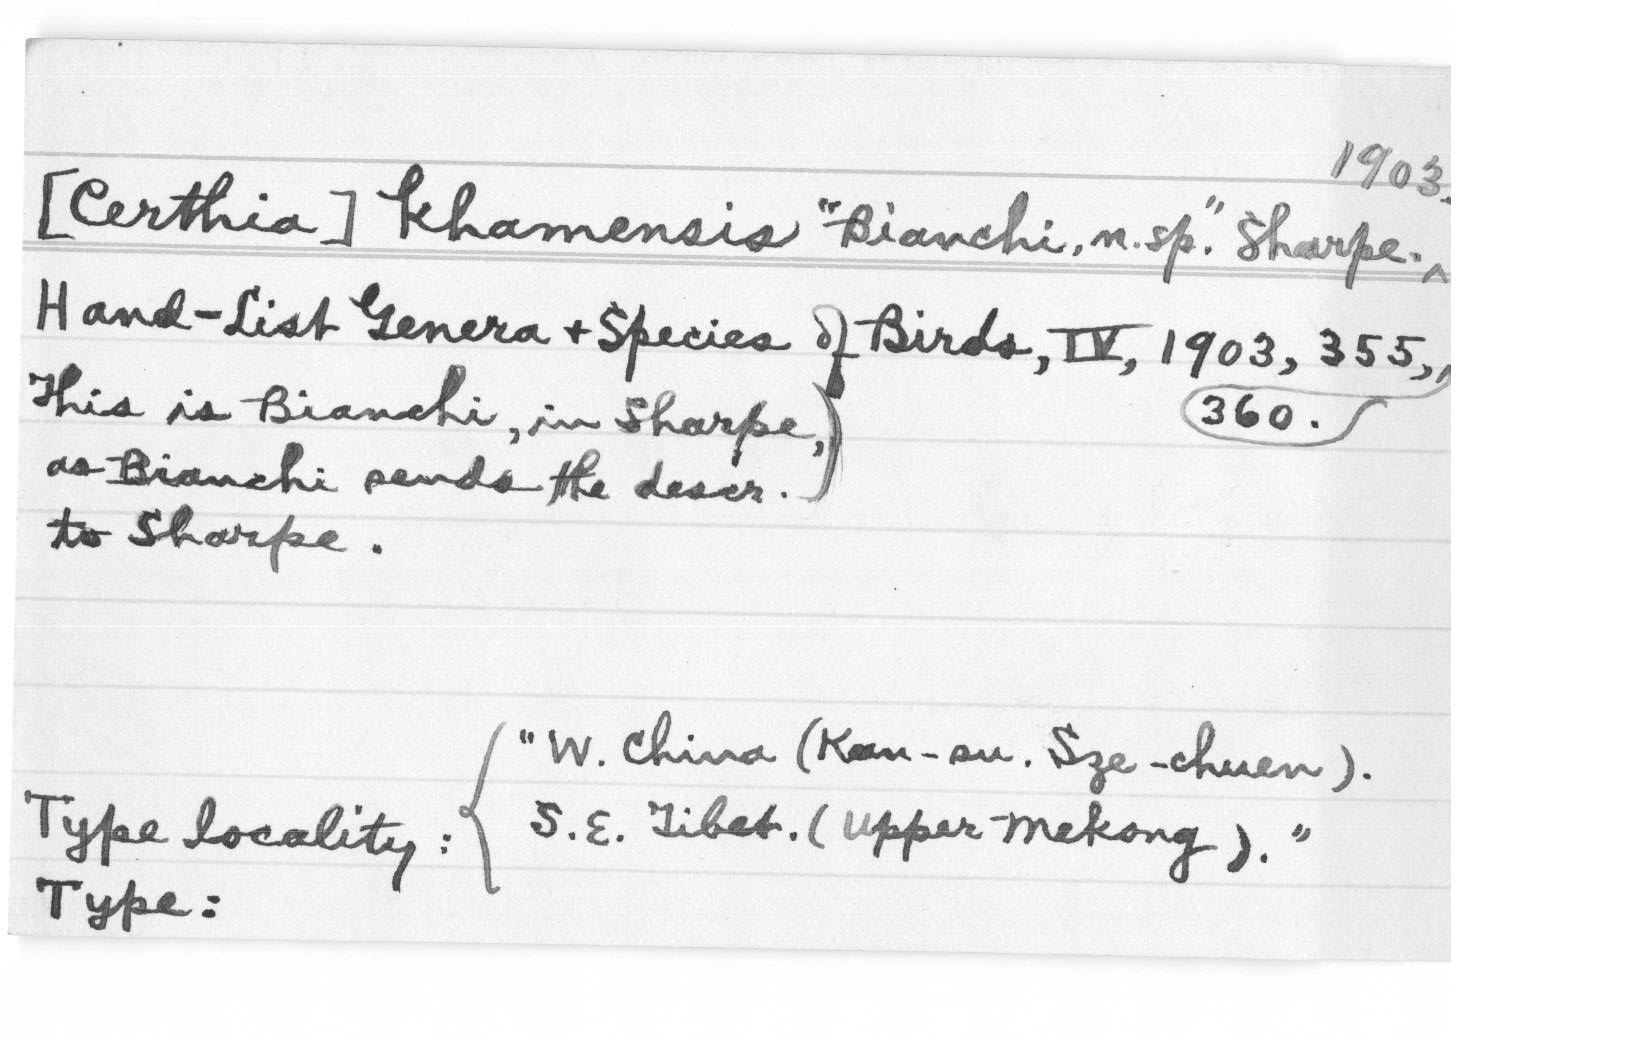 1903.
[Certhia] khamensis "Bianchi, n. sp." Sharpe. ^
Hand-List Genera + Species of Birds, IV, 1903, 355,
360.
This is Bianchi, in Sharpe,)
as Bianchi sends the descr.
to Sharpe.
"W. China (Kan-su. Sze-chuen).
S.E. Tibet. (Upper Mekong)."
Type locality:
Type: